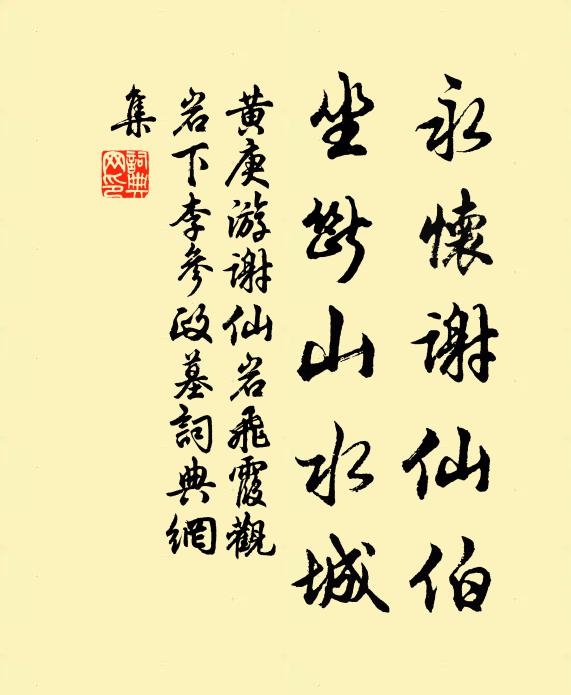 永懷謝仙伯
坐斷山水城
黃庚游謝仙岩飛霞觀
岩下李參政墓詞典網
集
詞典网印